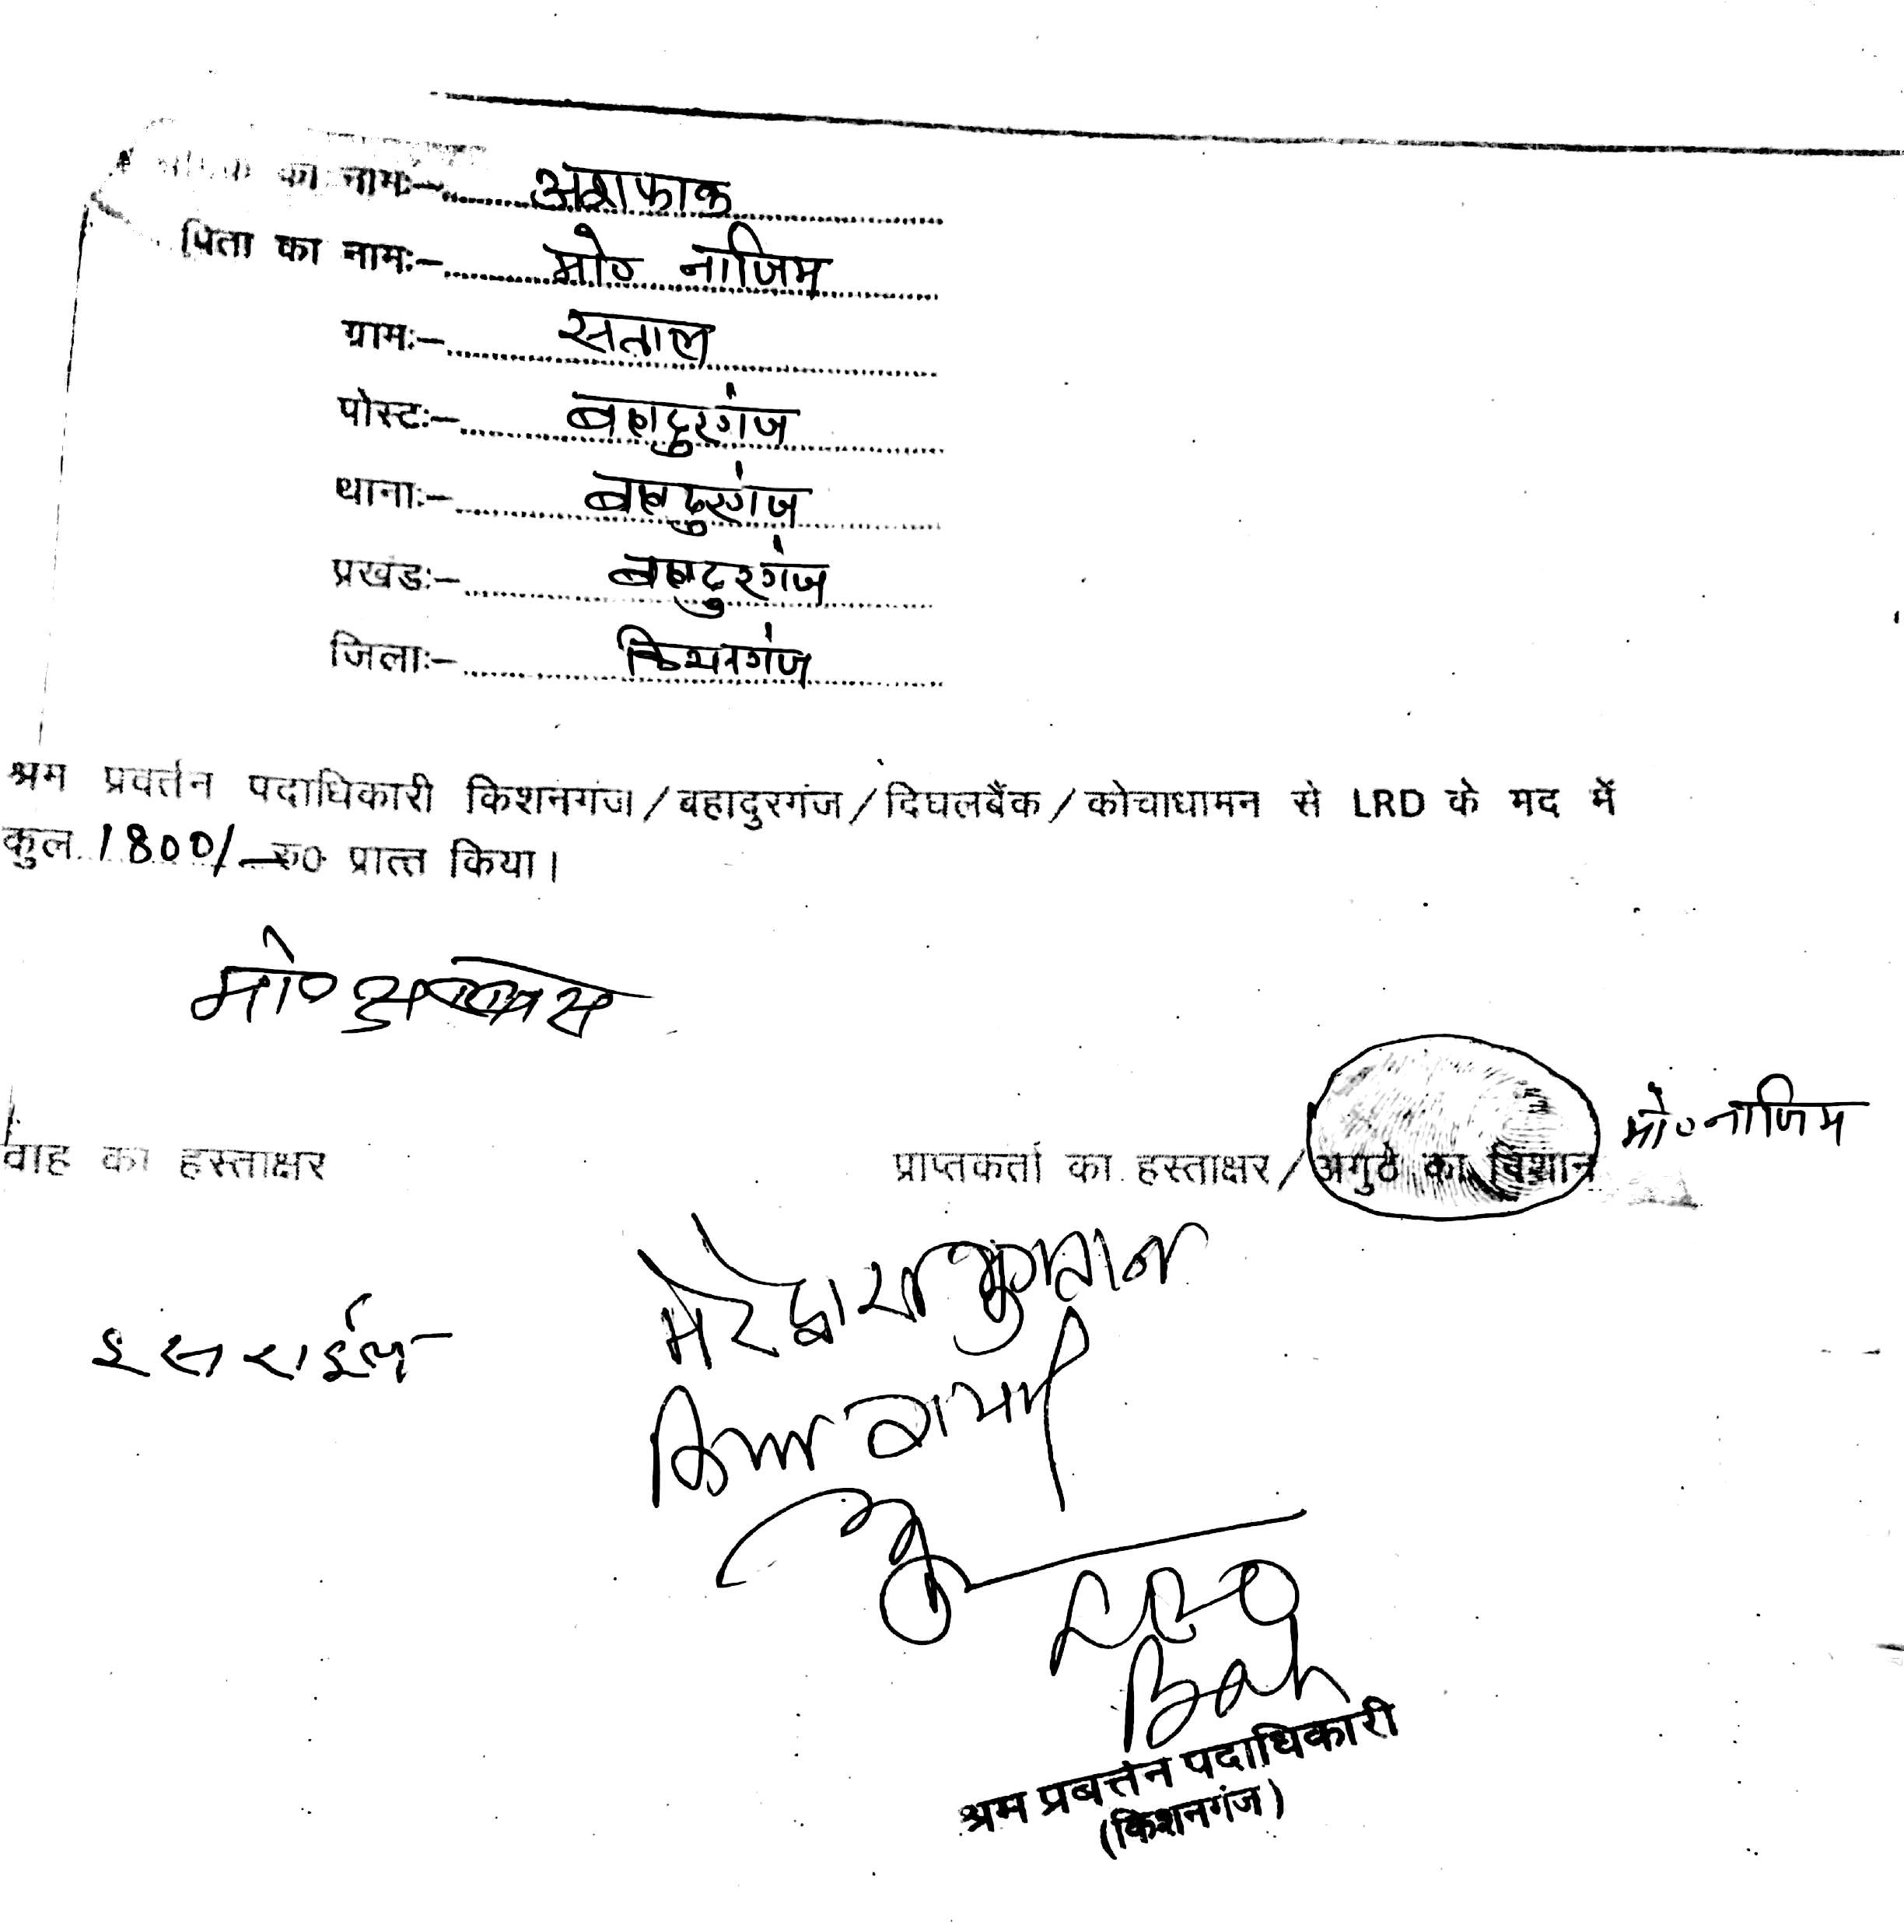 का नामः- अशफाक
पिता का नामः- मो० नाजिम
ग्रामः- सताल
पोस्टः- बहादुरगंज
थानाः- बहादुरगंज
प्रखंडः- बहादुरगंज
जिलाः- किशनगंज
श्रम प्रवर्तन पदाधिकारी किशनगंज/बहादुरगंज/दिघलबैंक/कोचाधामन से LRD के मद में
कुल 1800/- रु० प्रात्त किया।
मो०
मो० नाजिम
वाह का हस्ताक्षर प्राप्तकर्ता का हस्ताक्षर/अगुठे का निशान
मेरे द्वारा भुगतान
इसराईल
किया गया।
LEO
Bah
श्रम प्रबर्त्तन पदाधिकारी
(किशनगंज)